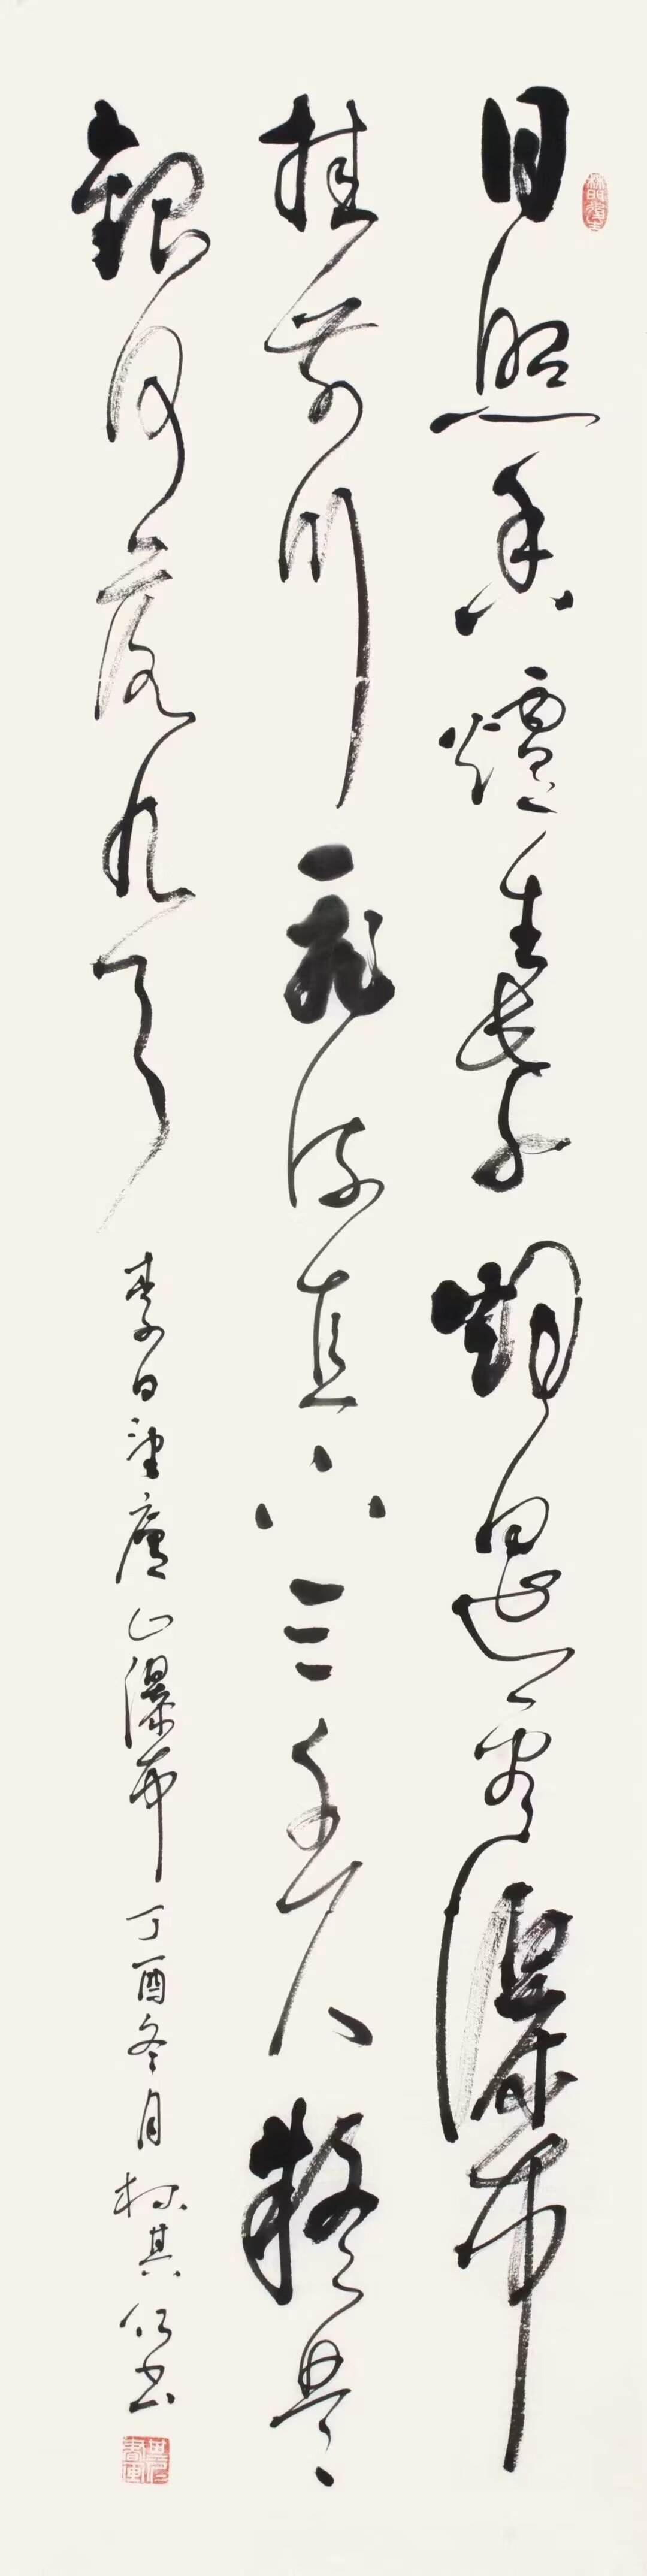 日照香爐生紫烟遥看瀑布
挂前川飛流直下三千尺疑是
銀河落九天 李白望廬山瀑布 丁酉冬月 林其书